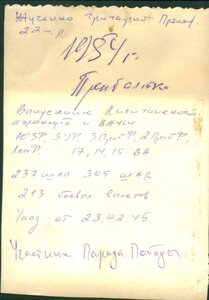 Жученко Григорий Прокоф.
22 г.р.
1954 г.
Прибалтика
Выпускник Лисичанского
аэроклуба и ВАУШ
ЮЗФ, 3 УФ, 3 ПрибФ, 2 ПрибФ,
ЛенФ 17, 14, 15 ВА
237 шап 305 шад
213 боевых вылетов
Указ от 23.02.45
Участник Парада Победы